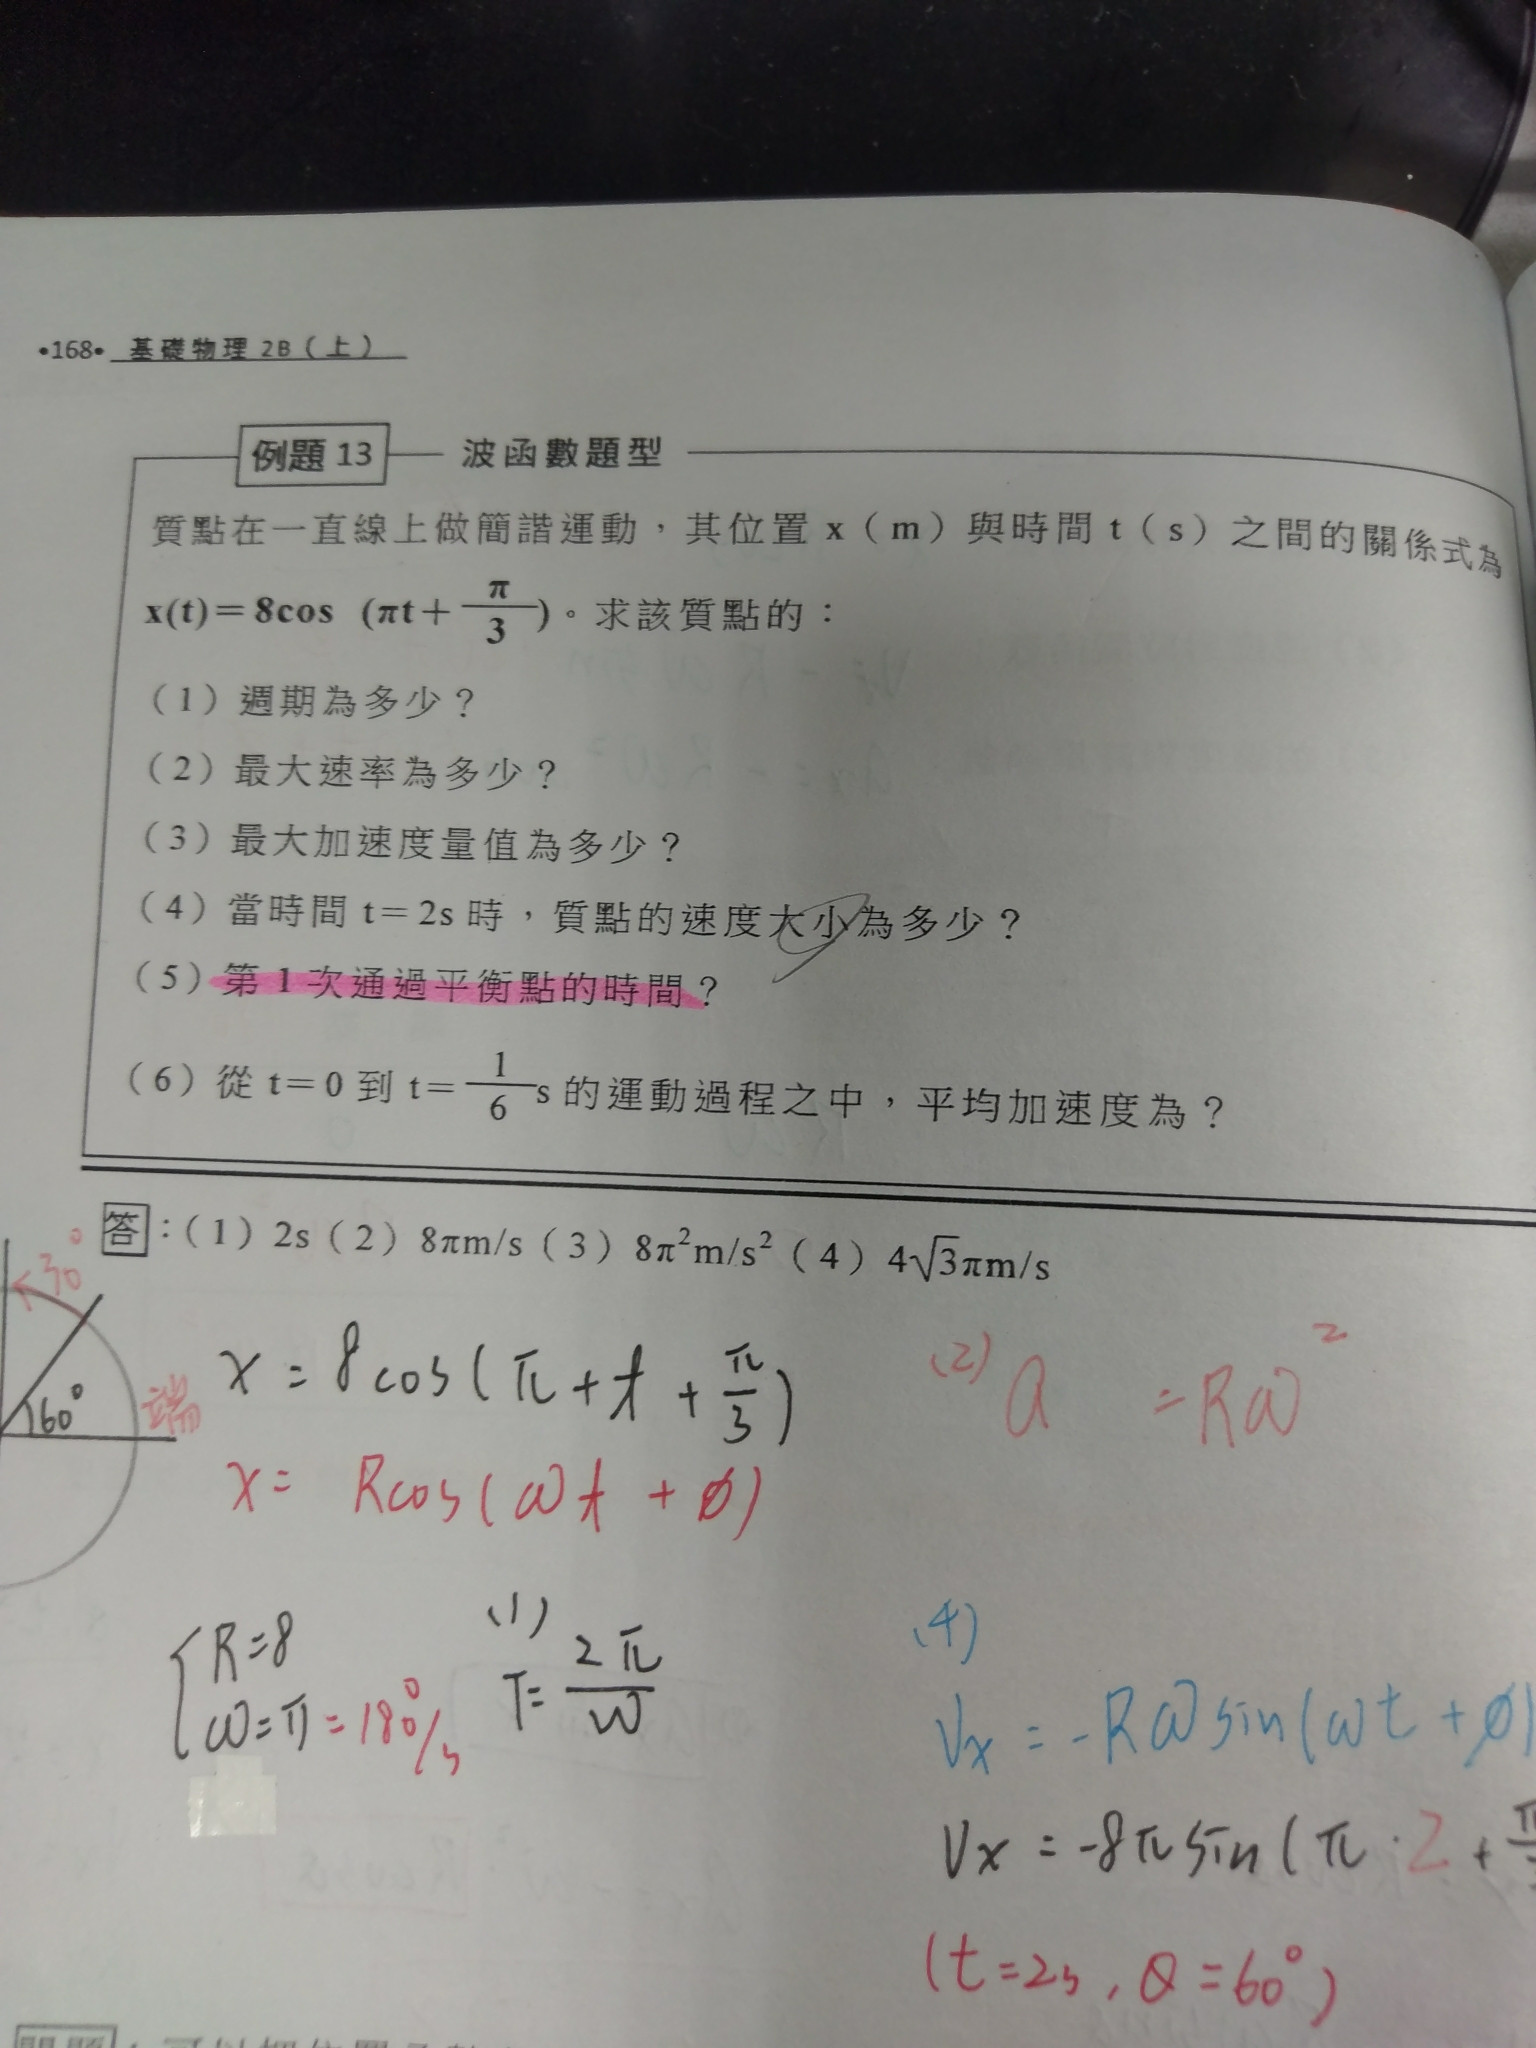 •168• 基礎物理 2B（上）
例題 13 波函數題型
質點在一直線上做簡諧運動，其位置 x（m）與時間 t（s）之間的關係式為
x(t)＝8cos (πt＋π/3)。求該質點的：
（1）週期為多少？
（2）最大速率為多少？
（3）最大加速度量值為多少？
（4）當時間 t＝2s 時，質點的速度大小為多少？
（5）第 1 次通過平衡點的時間？
（6）從 t＝0 到 t＝1/6 s 的運動過程之中，平均加速度為？
答：（1）2s（2）8πm/s（3）8π²m/s²（4）4√3πm/s
30°
60°
端
x = 8cos(π+t+π/3)
x= Rcos(ωt+ø)
(2) a = Rω²
R=8
ω=π=180°/s
(1) T=2π/ω
(4)
Vx = -Rωsin(ωt+ø)
Vx = -8πsin(π·2+π
(t=2s, θ=60°)